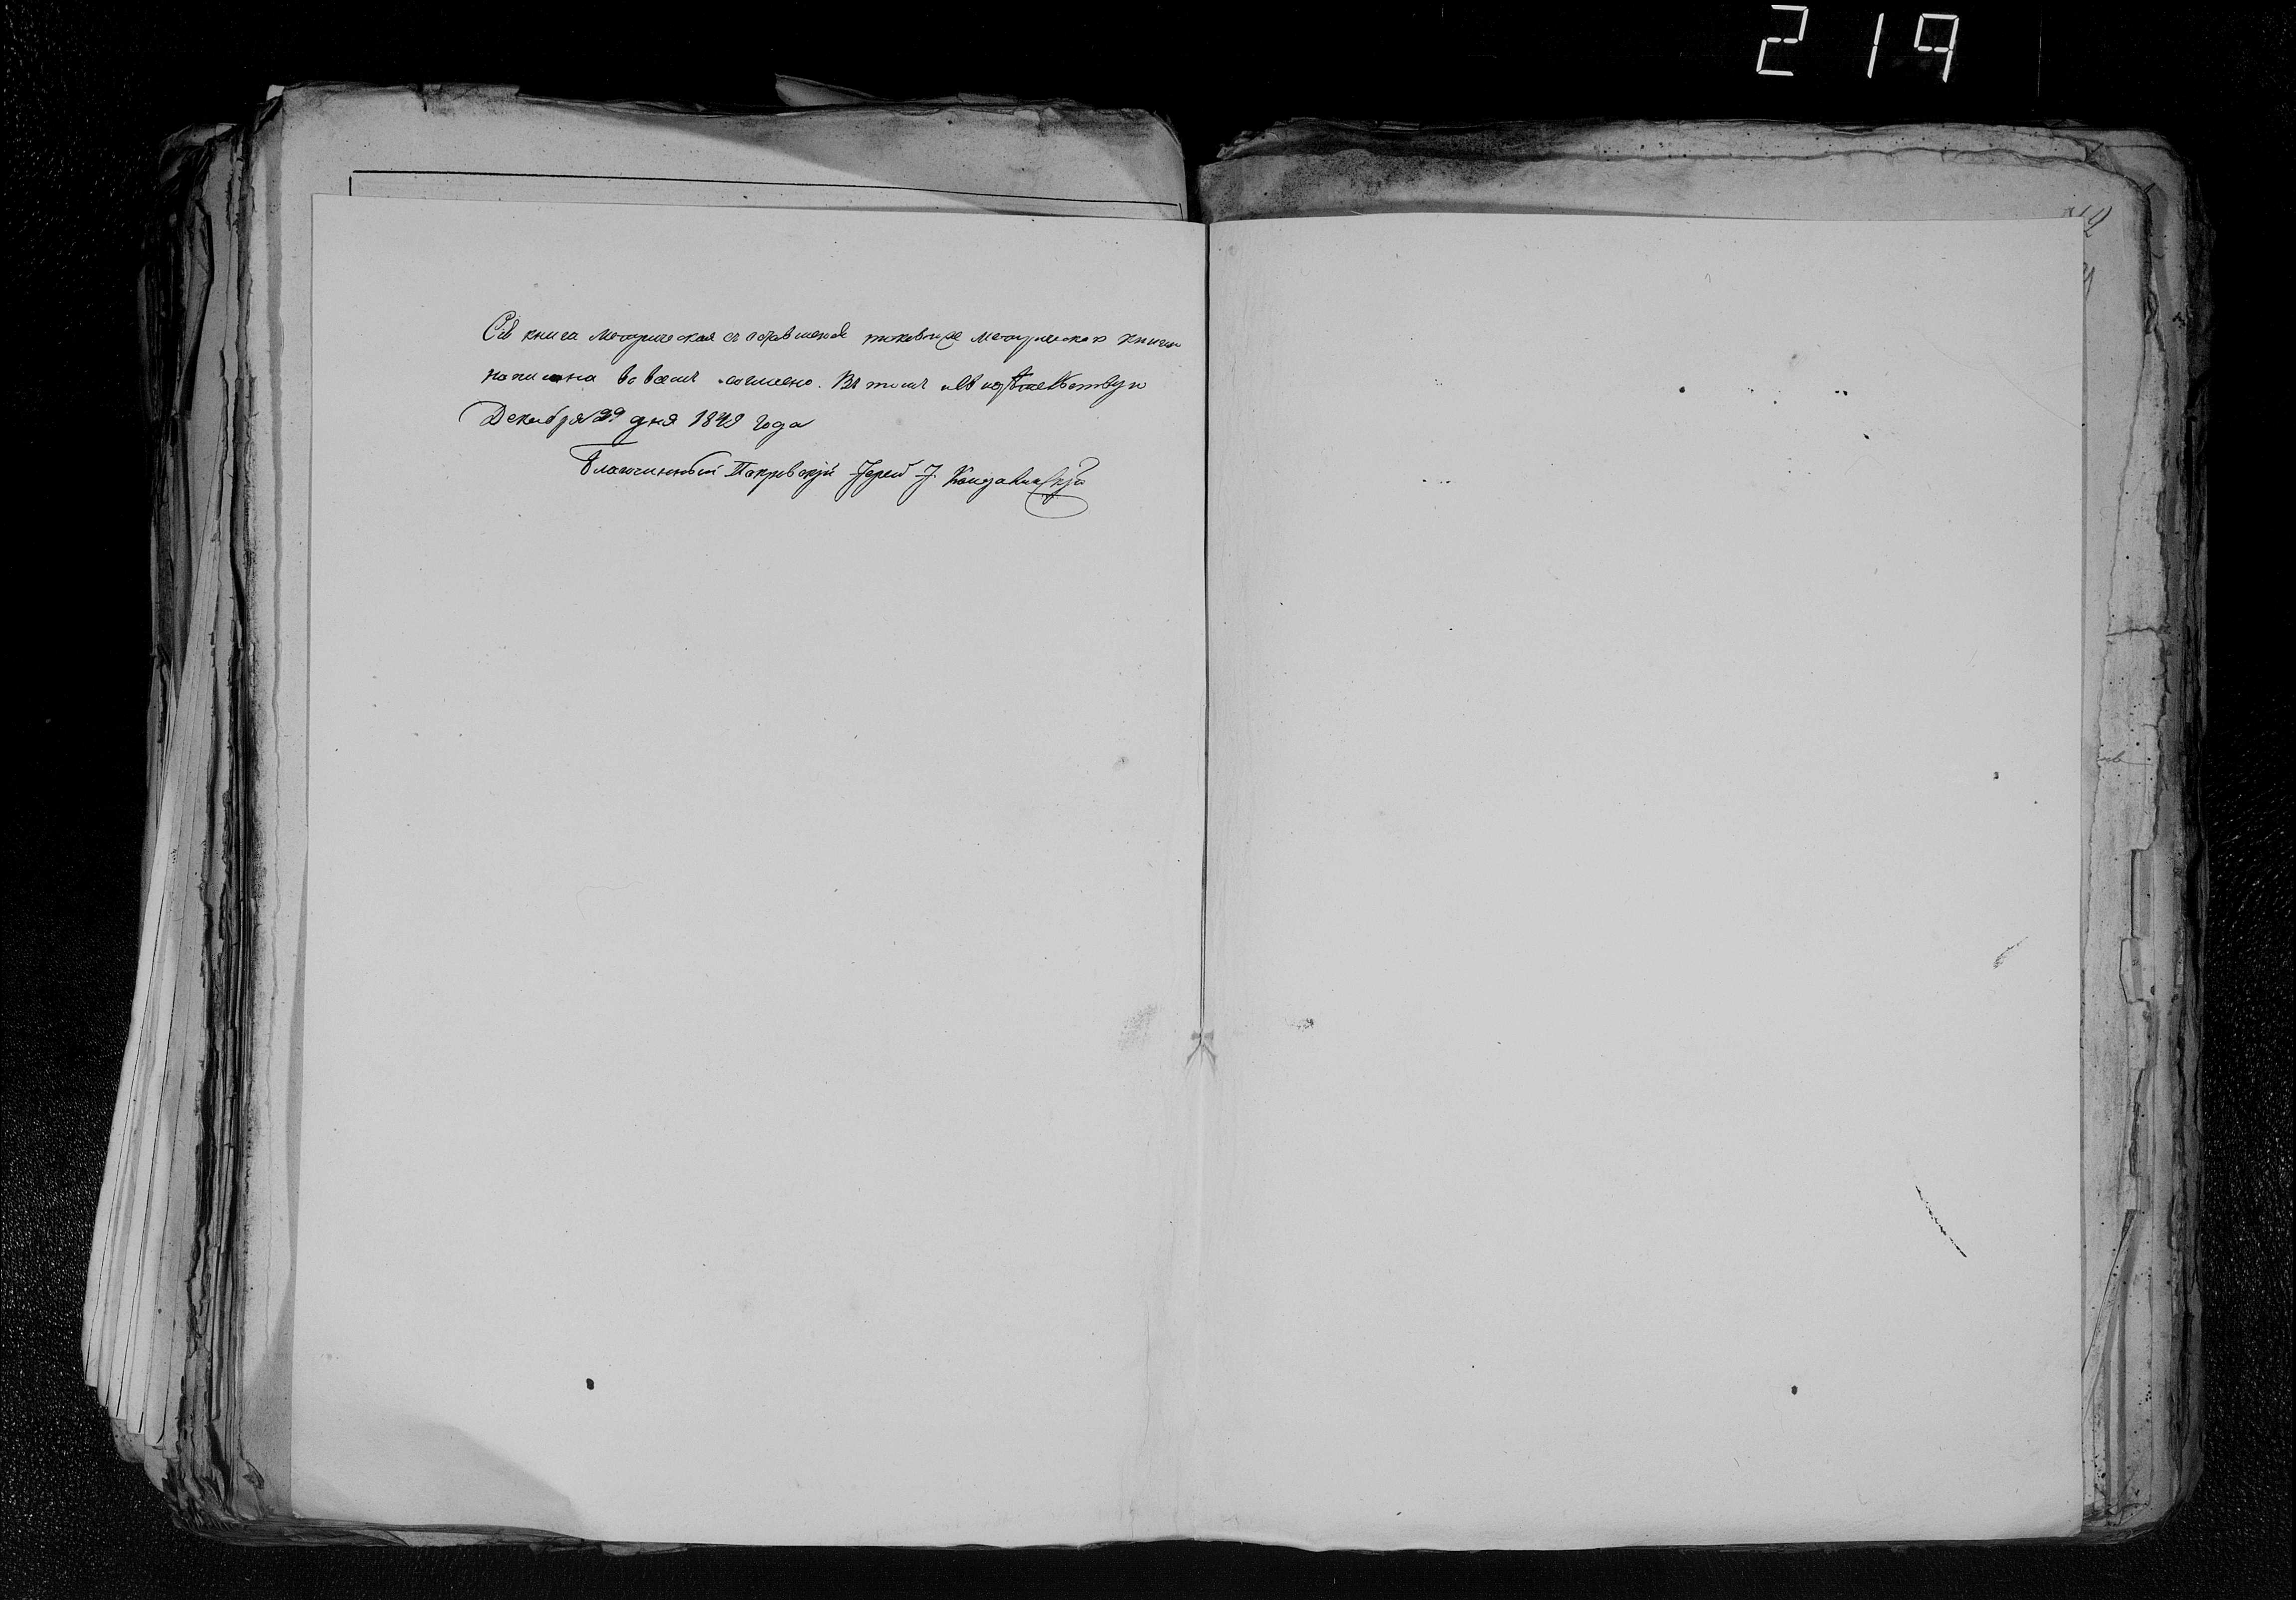 219
Сія книга Метрическая съ оставшеюся таковою Метрическою книгою
написана во всемъ согласно. Въ томъ свидѣтельствую
Декабря 29 дня 1849 года
Благочинный Покровскій Іерей І.